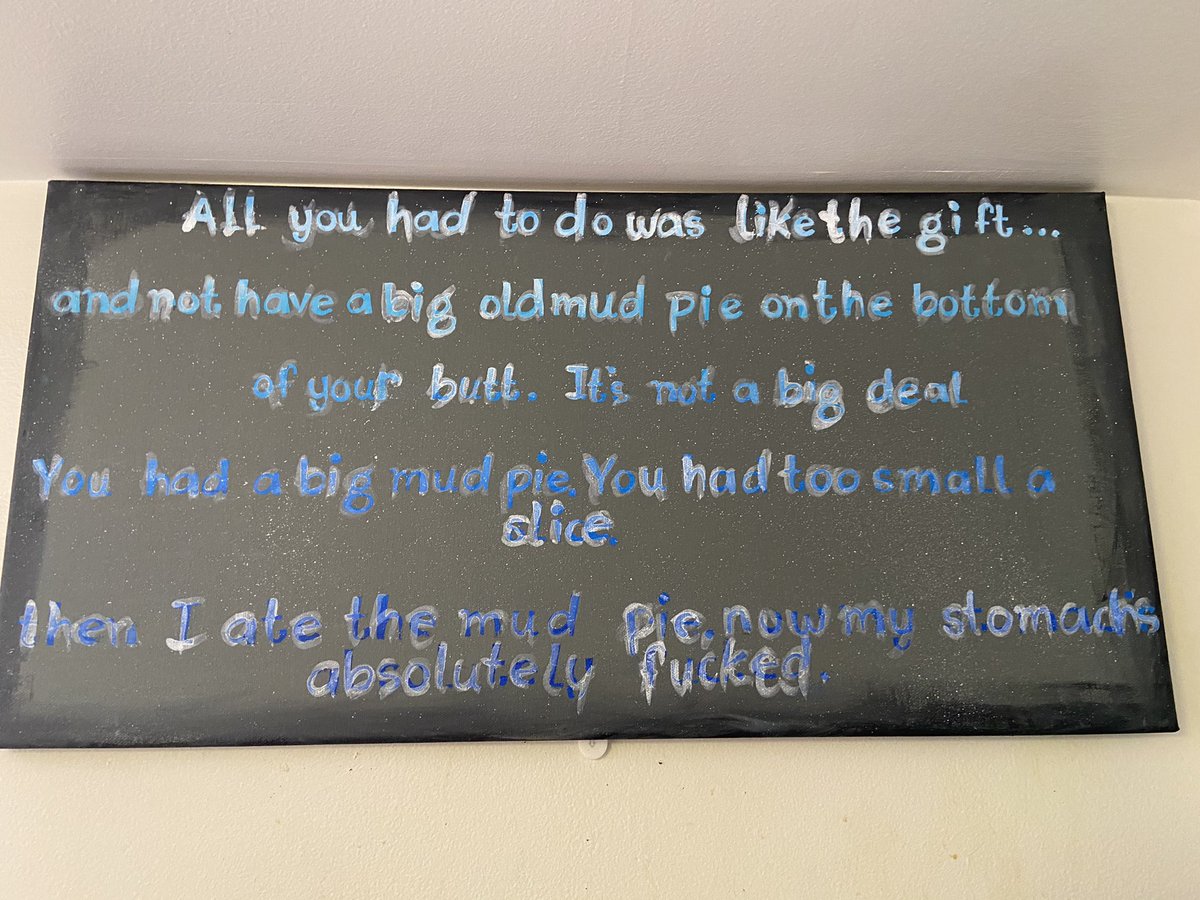 All you had to do was like the gift...
and not have a big old mud pie on the bottom
of your butt. It's not a big deal
You had a big mud pie. You had too small a
slice.
then I ate the mud pie. now my stomach's
absolutely fucked.